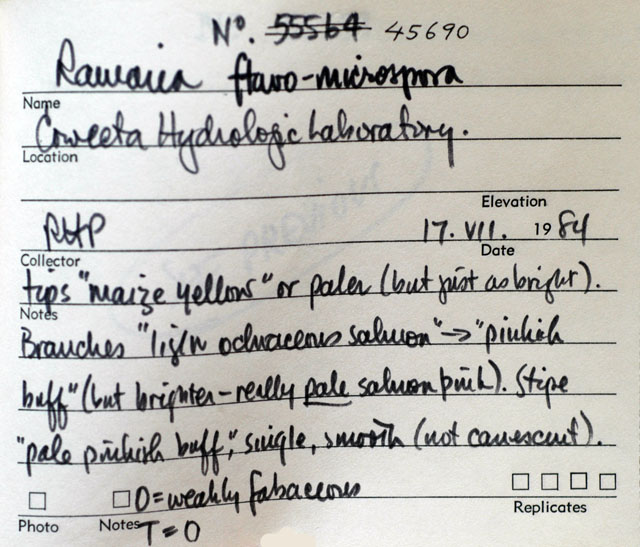 Nº. 55564 45690
Ramaria flavo-microspora
Name
Coweeta Hydrologic Laboratory.
Location
Elevation
RHP 17. VII. 1984
Collector Date
tips "maize yellow" or paler (but just as bright).
Notes
Branches "light ochraceous salmon" → "pinkish
buff" (but brighter - really pale salmon pink). Stipe
"pale pinkish buff," single, smooth (not canescent).
O = weakly fabaceous
Photo Notes Replicates
T = O